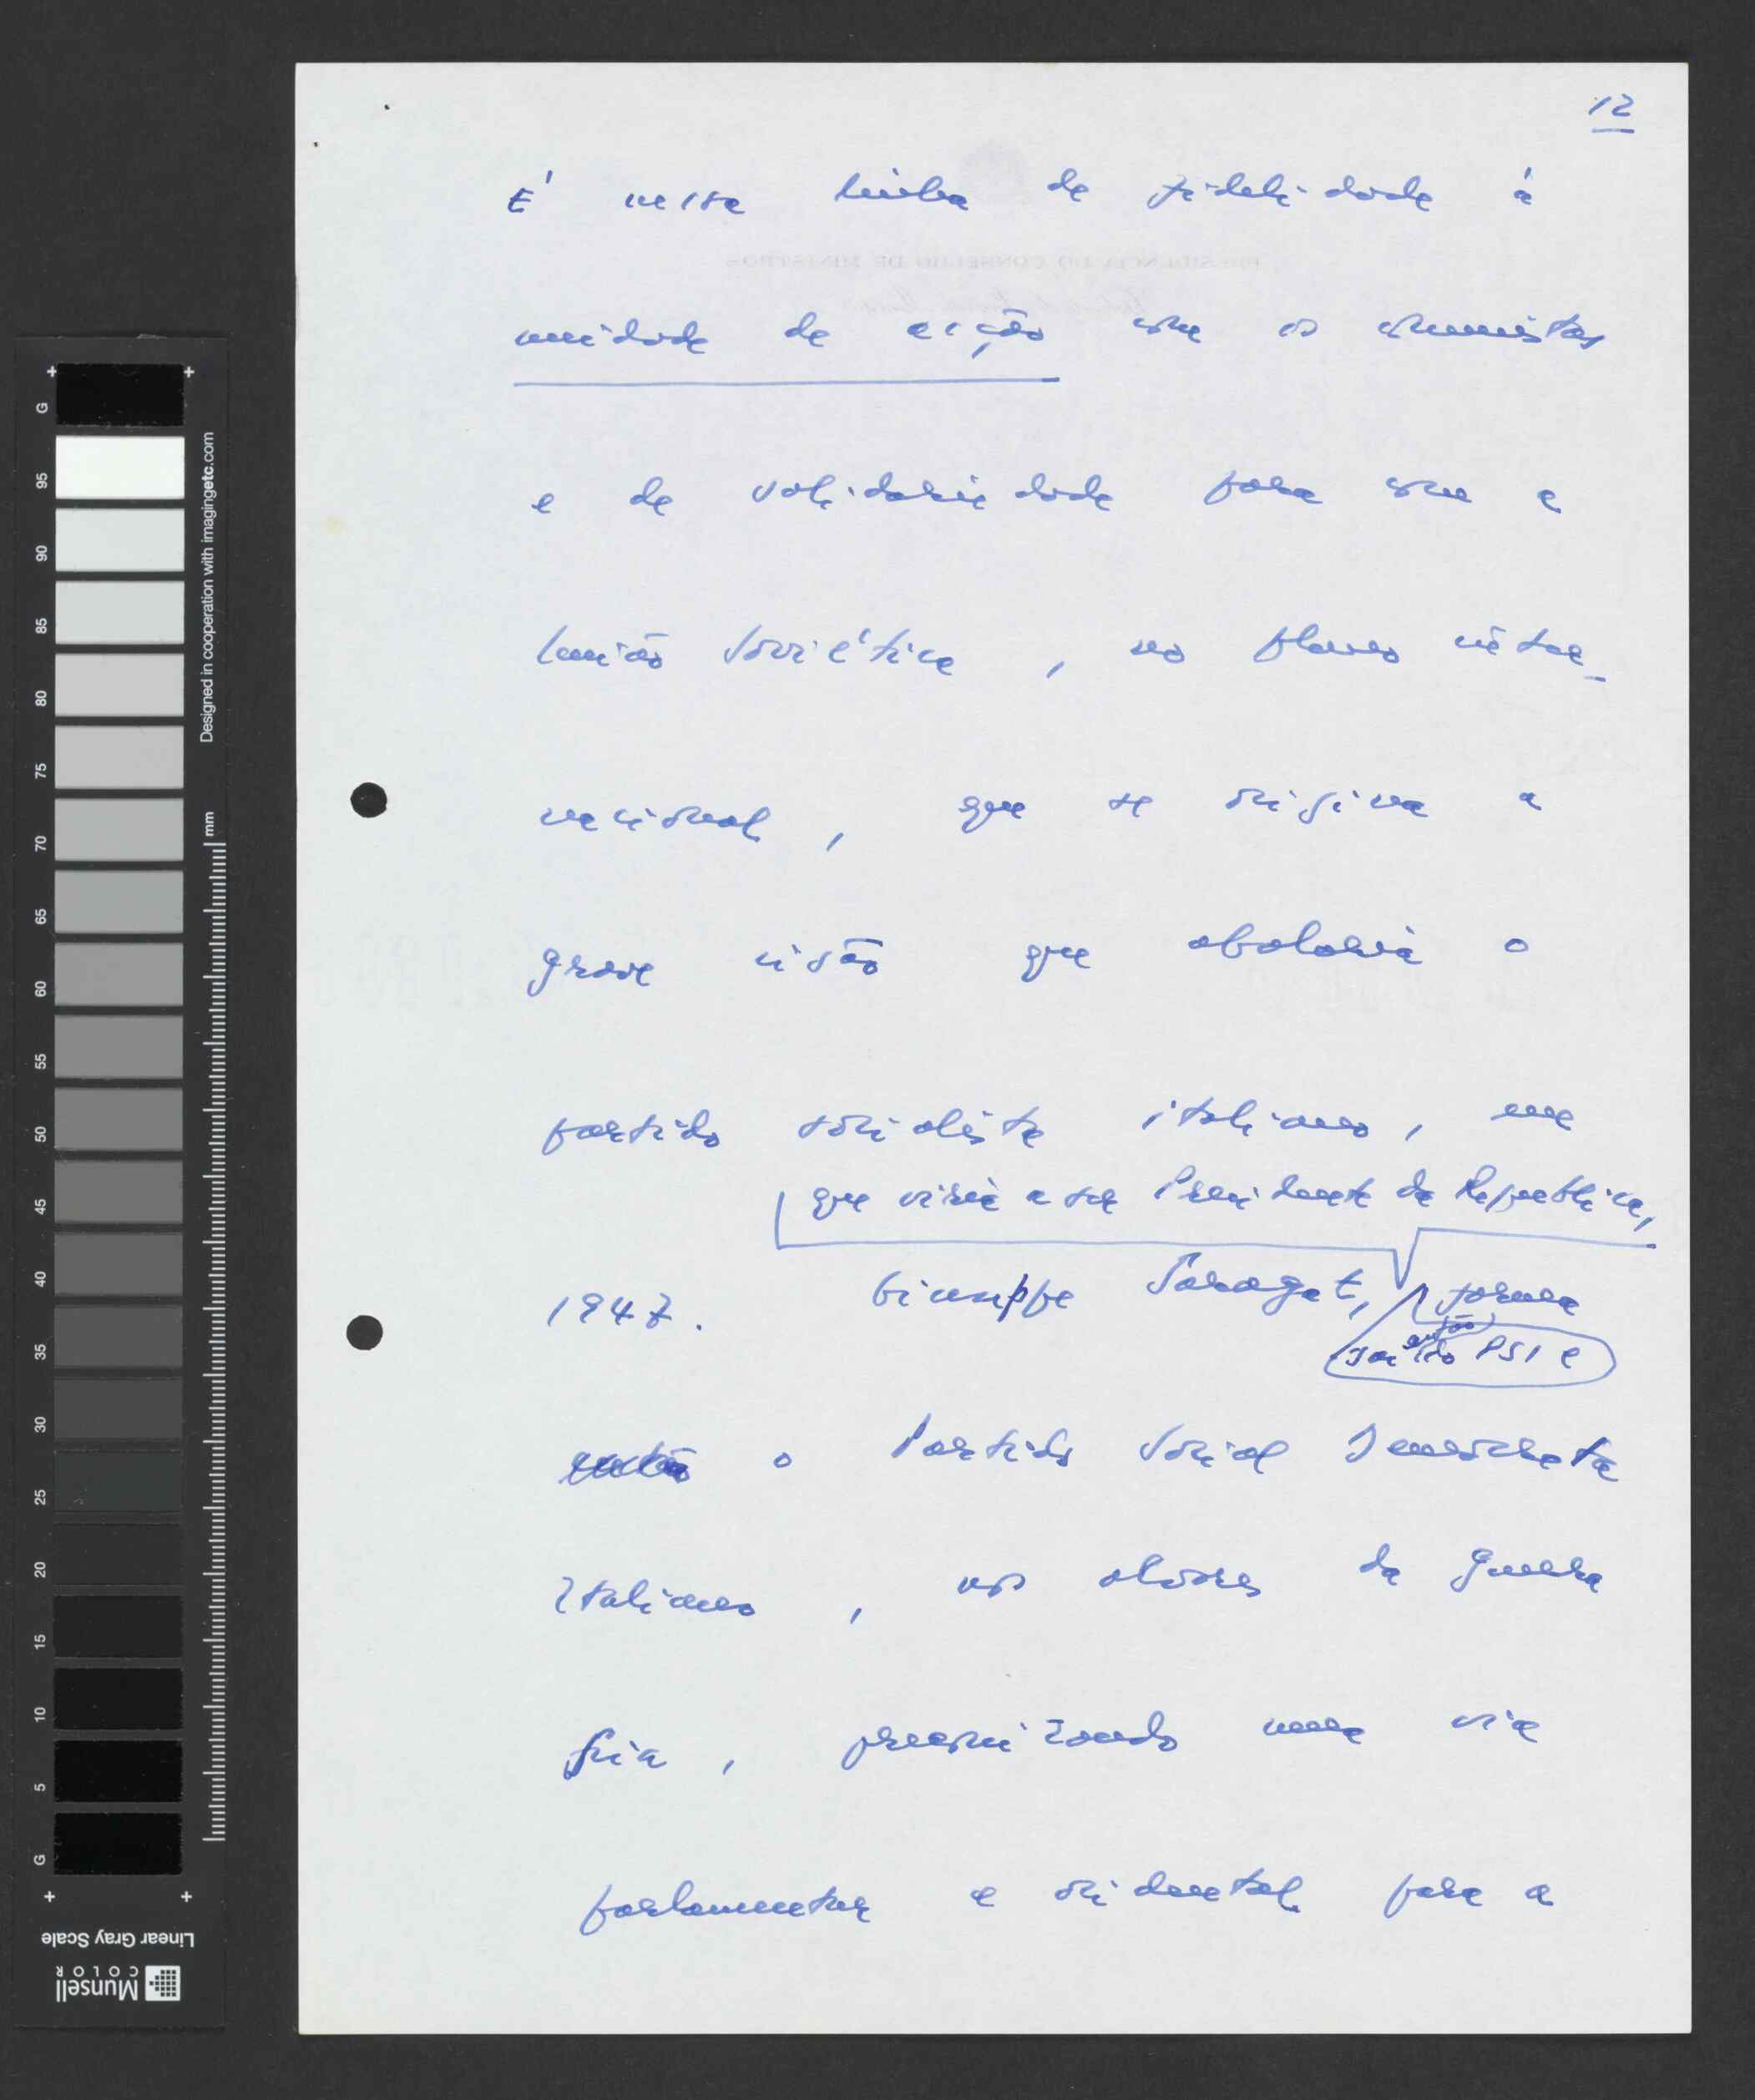 12
É nessa linha de fidelidade á
unidade de acção com os comunistas
e de solidariedade para com a
União Soviética, no plano inter-
nacional, que se origina a
grave cisão que abalaria o
partido socialista italiano, em
que viria a ser Presidente da Republica,
1947. Giuseppe Saragat, forma
sai então do PSI e
então o Partido Social Democrata
Italiano, nos alvores da guerra
fria, preconizando uma via
parlamentar e ocidental para a
PRESIDÊNCIA DO CONSELHO DE MINISTROS
G 95 90 85 80 75 70 65 60 55 50 45 40 35 30 25 20 15 10 5 G
Designed in cooperation with imagingetc.com
mm
Linear Gray Scale
Munsell
COLOR